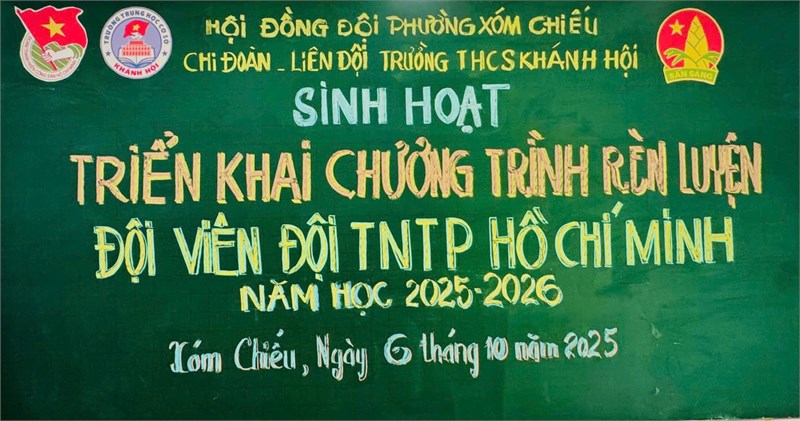 HỘI ĐỒNG ĐỘI PHƯỜNG XÓM CHIẾU
CHI ĐOÀN - LIÊN ĐỘI TRƯỜNG THCS KHÁNH HỘI
TRƯỜNG TRUNG HỌC CƠ SỞ
KHÁNH HỘI
SẴN SÀNG
SINH HOẠT
TRIỂN KHAI CHƯƠNG TRÌNH RÈN LUYỆN
ĐỘI VIÊN ĐỘI TNTP HỒ CHÍ MINH
NĂM HỌC 2025-2026
Xóm Chiếu, Ngày 6 tháng 10 năm 2025